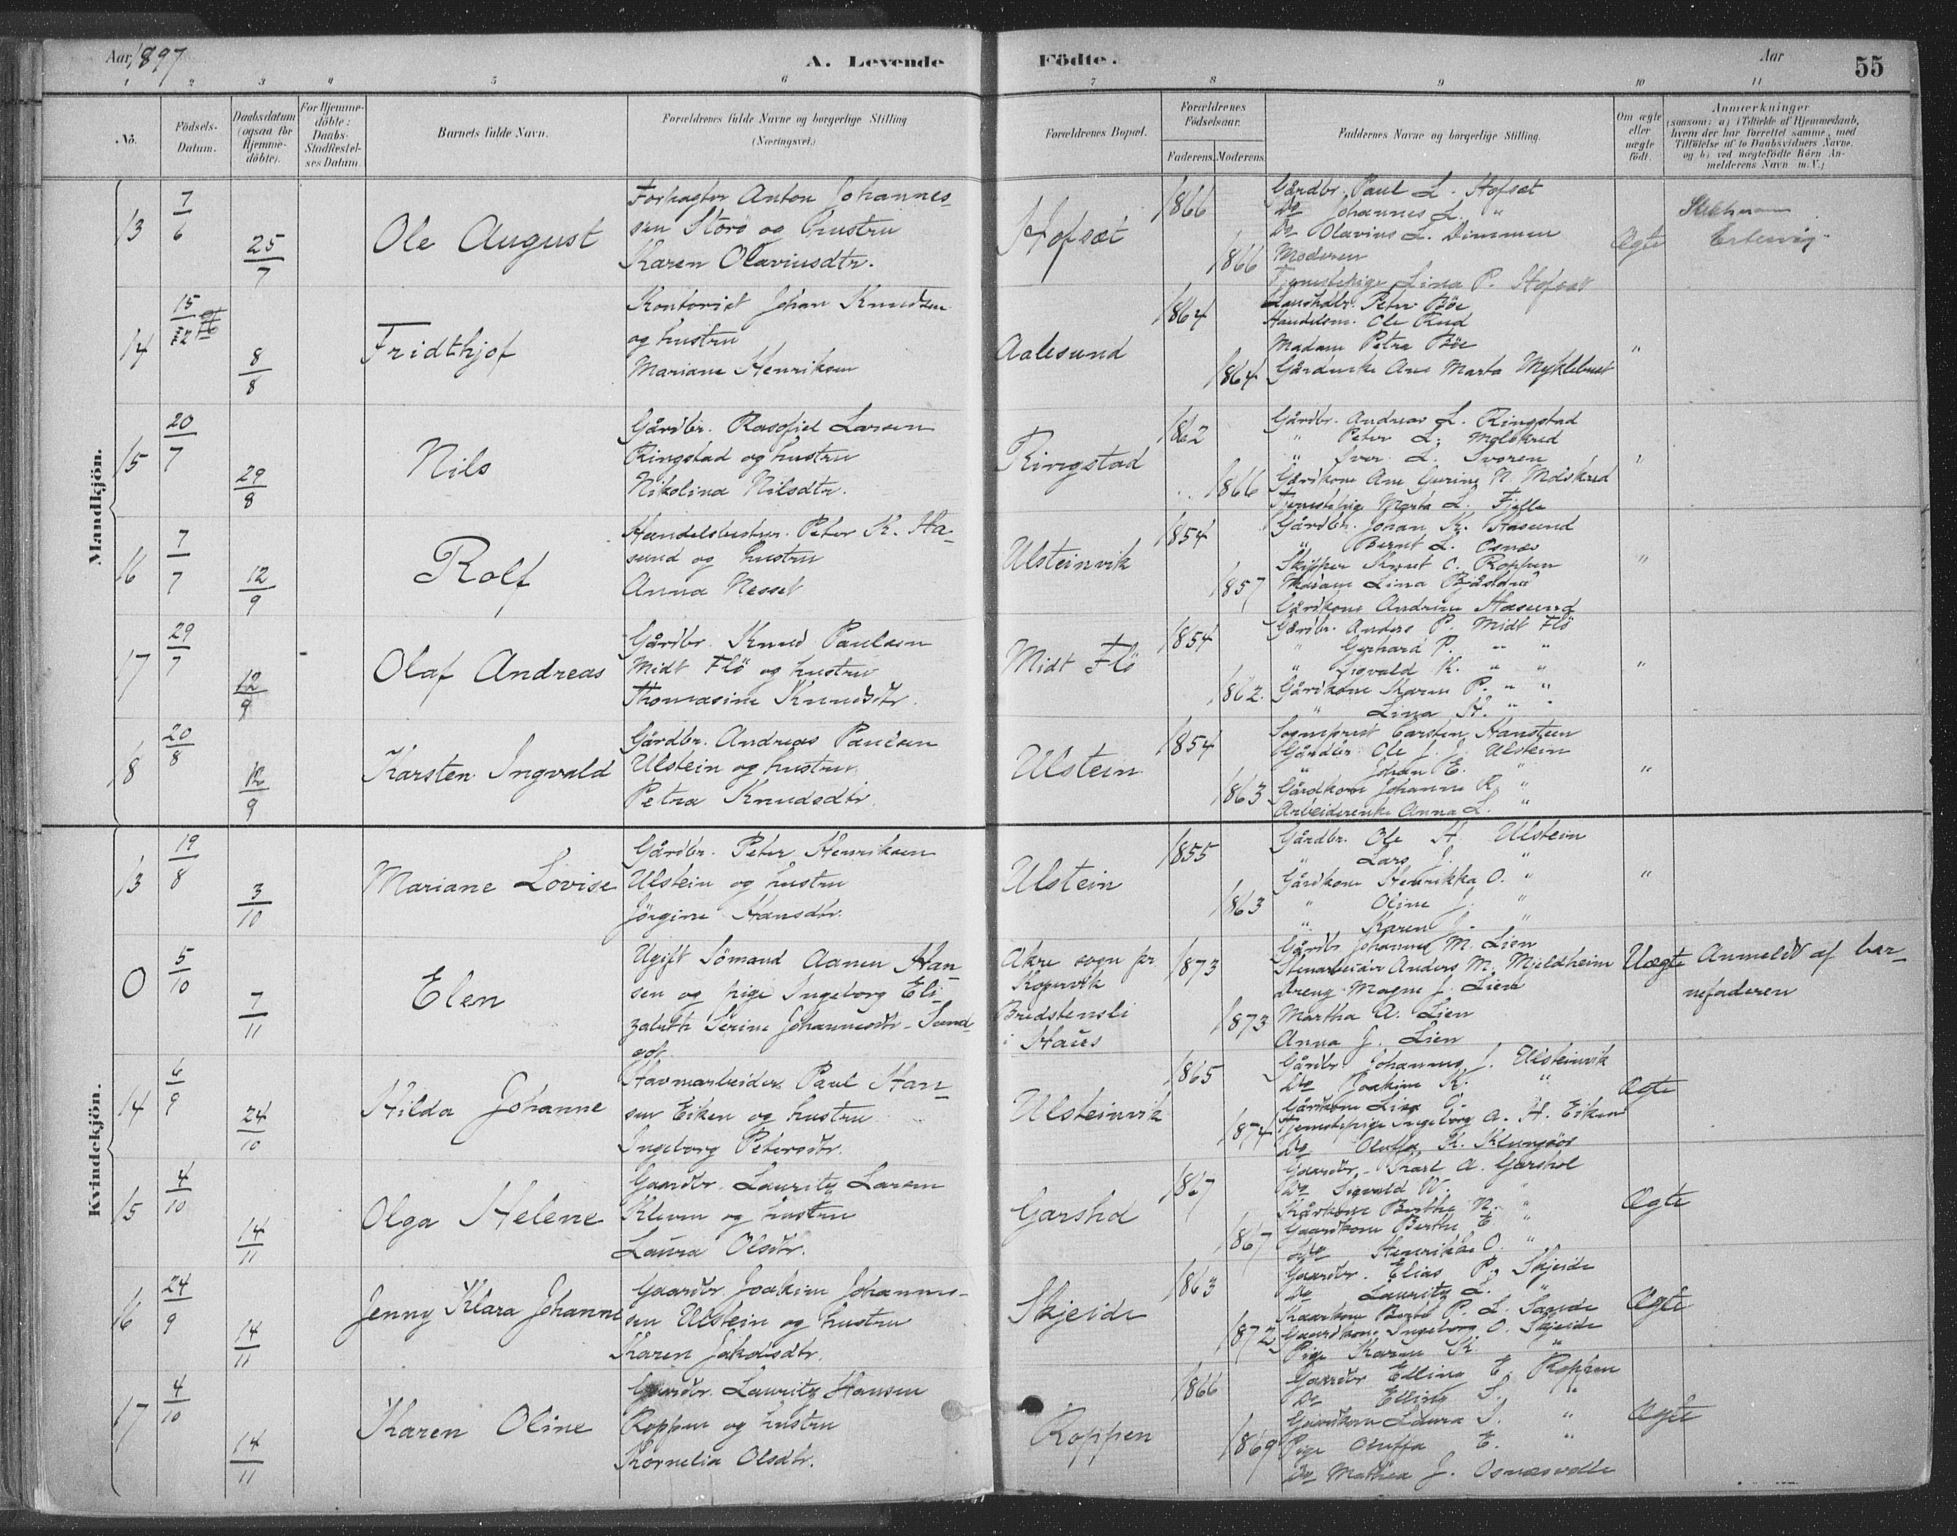 Aar 1897
A. Levende
Födte.
Aar
55
1 2 3 4 5 6 7 8 9 10 11
No.
Födsels-Datum.
Daabsdatum (ogsaa for Hjemmedöbte).
For Hjemmedöbte: Daabs-Stadfæstelses Datum.
Barnets fulde Navn.
Forældrenes fulde Navne og borgerlige Stilling
(Næringsvei.)
Forældrenes Bopæl.
Forældrenes Födselsaar.
Faderens. Moderens.
Faddernes Navne og borgerlige Stilling.
Om ægte eller uægte födt.
Anmærkninger
(saasom: a) i Tilfælde af Hjemmedaab,
hvem der har forrettet samme, med
Tilföielse af to Daabsvidners Navne,
og b) ved uægtefödte Börn Anmelderens
Navn m.V.;
Mandkjön.
13 7/6 25/7 Ole August
Forpagter Anton Johannes-
sen Storö og hustru
Karen Olaviusdtr.
Hofsæt
1866
1866
Gårdbr. Paul L. Hofsæt
Do Johannes L. "
Do Olavius L. Dimmen
Moderen
Tjenestepige Lina P. Hofsæt
Ægte
14 15/12 96 8/8 Fridthjof
Kontorist Johan Knudsen
og hustru
Mariane Henriksen
Aalesund
1864
1864
Landhdlr. Peter Böe
Handelsm. Ole Rud
Madam Petra Böe
Gårdenke Ane Marta Myklebust
"
15 20/7 29/8 Nils
Gårdbr. Rasofiel Larsen
Ringstad og hustru
Nikolina Nilsdtr.
Ringstad
1862
1866
Gårdbr. Andreas L. Ringstad
" Peter L. Molskred
" Iver L. Svoren
Gårdkone Ane Gurine N. Molskred
Tjenestepige Marta L. Fjelle
"
16 7/7 12/9 Rolf
Handelsbestyrer Peter K. Ha-
sund og hustru
Anna Nesset
Ulsteinvik
1854
1857
Gårdbr. Johan K. Hasund
" Bernt L. Osnæs
Skipper Knut C. Roppen
Madam Lina Bjåstad
Gårdkone Andrine Hasund
"
17 29/7 12/9 Olaf Andreas
Gårdbr. Knud Paulsen
Midt Flö og hustru
Thomasine Knudsdtr.
Midt Flö
1854
1862.
Gårdbr. Anders P. Midt Flö
" Gerhard P. " "
" Sigvald K. " "
Gårdkone Karen P. " "
" Lina H. " "
"
18 20/8 12/9 Karsten Ingvald
Gårdbr. Andreas Paulsen
Ulstein og hustru
Petra Knudsdtr.
Ulstein
1854
1863
Sogneprest Carsten Hansteen
Gårdbr. Ole J. J. Ulstein
" Johan E. "
Gårdkone Johanne R. "
Arbeiderenke Anna L. "
"
Kvindekjön.
13 19/8 3/10 Mariane Lovise
Gårdbr. Peter Henriksen
Ulstein og hustru
Jörgine Hansdtr.
Ulstein
1855
1863
Gårdbr. Ole H. Ulstein
" Lars J. "
Gårdkone Henrikka O. "
" Oline J. "
" Karen J. "
"
0 5/10 7/11 Elen
Ugift Sömand Aanen Han-
sen og pige Ingeborg Eli-
zabeth Serine Johannesdtr. Sund-
Akre sogn pr
Kopervik
Bredstensli
i Haus
1873
1873
Gårdbr. Johannes M. Lien
Stenarbeider Anders M. Mjeldheim
Dreng Magne J. Lien
Martha A. Lien
Anna J. Lien
Uægte
Anmeldt af bar-
nefaderen
14 6/9 24/10 Hilda Johanne
Havnearbeider Paul Han-
sen Eiken og hustru
Ingeborg Petersdtr.
Ulsteinvik
1865
1874
Gårdbr. Johannes J. Ulsteinvik
Do Joakim K. "
Gårdkone Lina O.
Tjenestepige Ingeborg A. H. Eiken
Do Oluffa K. Klungsör
Ægte
15 4/10 14/11 Olga Helene
Gaardbr. Lauritz Larsen
Kleven og hustru
Laura Olsdtr.
Garshol
1867
1867
Gaardbr. Karl A. Garshol
Do Sigvald N. "
Kårkone Berthe N. "
Gaardkone Berthe E. "
Do Henrikke O. "
Ægte
16 24/9 14/11 Jenny Klara Johanne
Gaardbr. Joakim Johannes-
sen Ulstein og hustru
Karen Jakobsdtr.
Skjeide
1863
1872
Gaardbr. Elias P. Skjeide
Do Lauritz L. "
Kaarkone Berte P. L.
Gaardkone Ingeborg O. Skjeide
Pige Karen K. "
Ægte
17 4/10 14/11 Karen Oline
Gaardbr. Lauritz Hansen
Roppen og hustru
Kornelia Olsdtr.
Roppen
1866
1869
Gaardbr. Elling E. Roppen
Do Elling S. "
Gaardkone Laura S. "
Pige Oluffa E. "
Do Mathea J. Osnæsvolle
Ægte